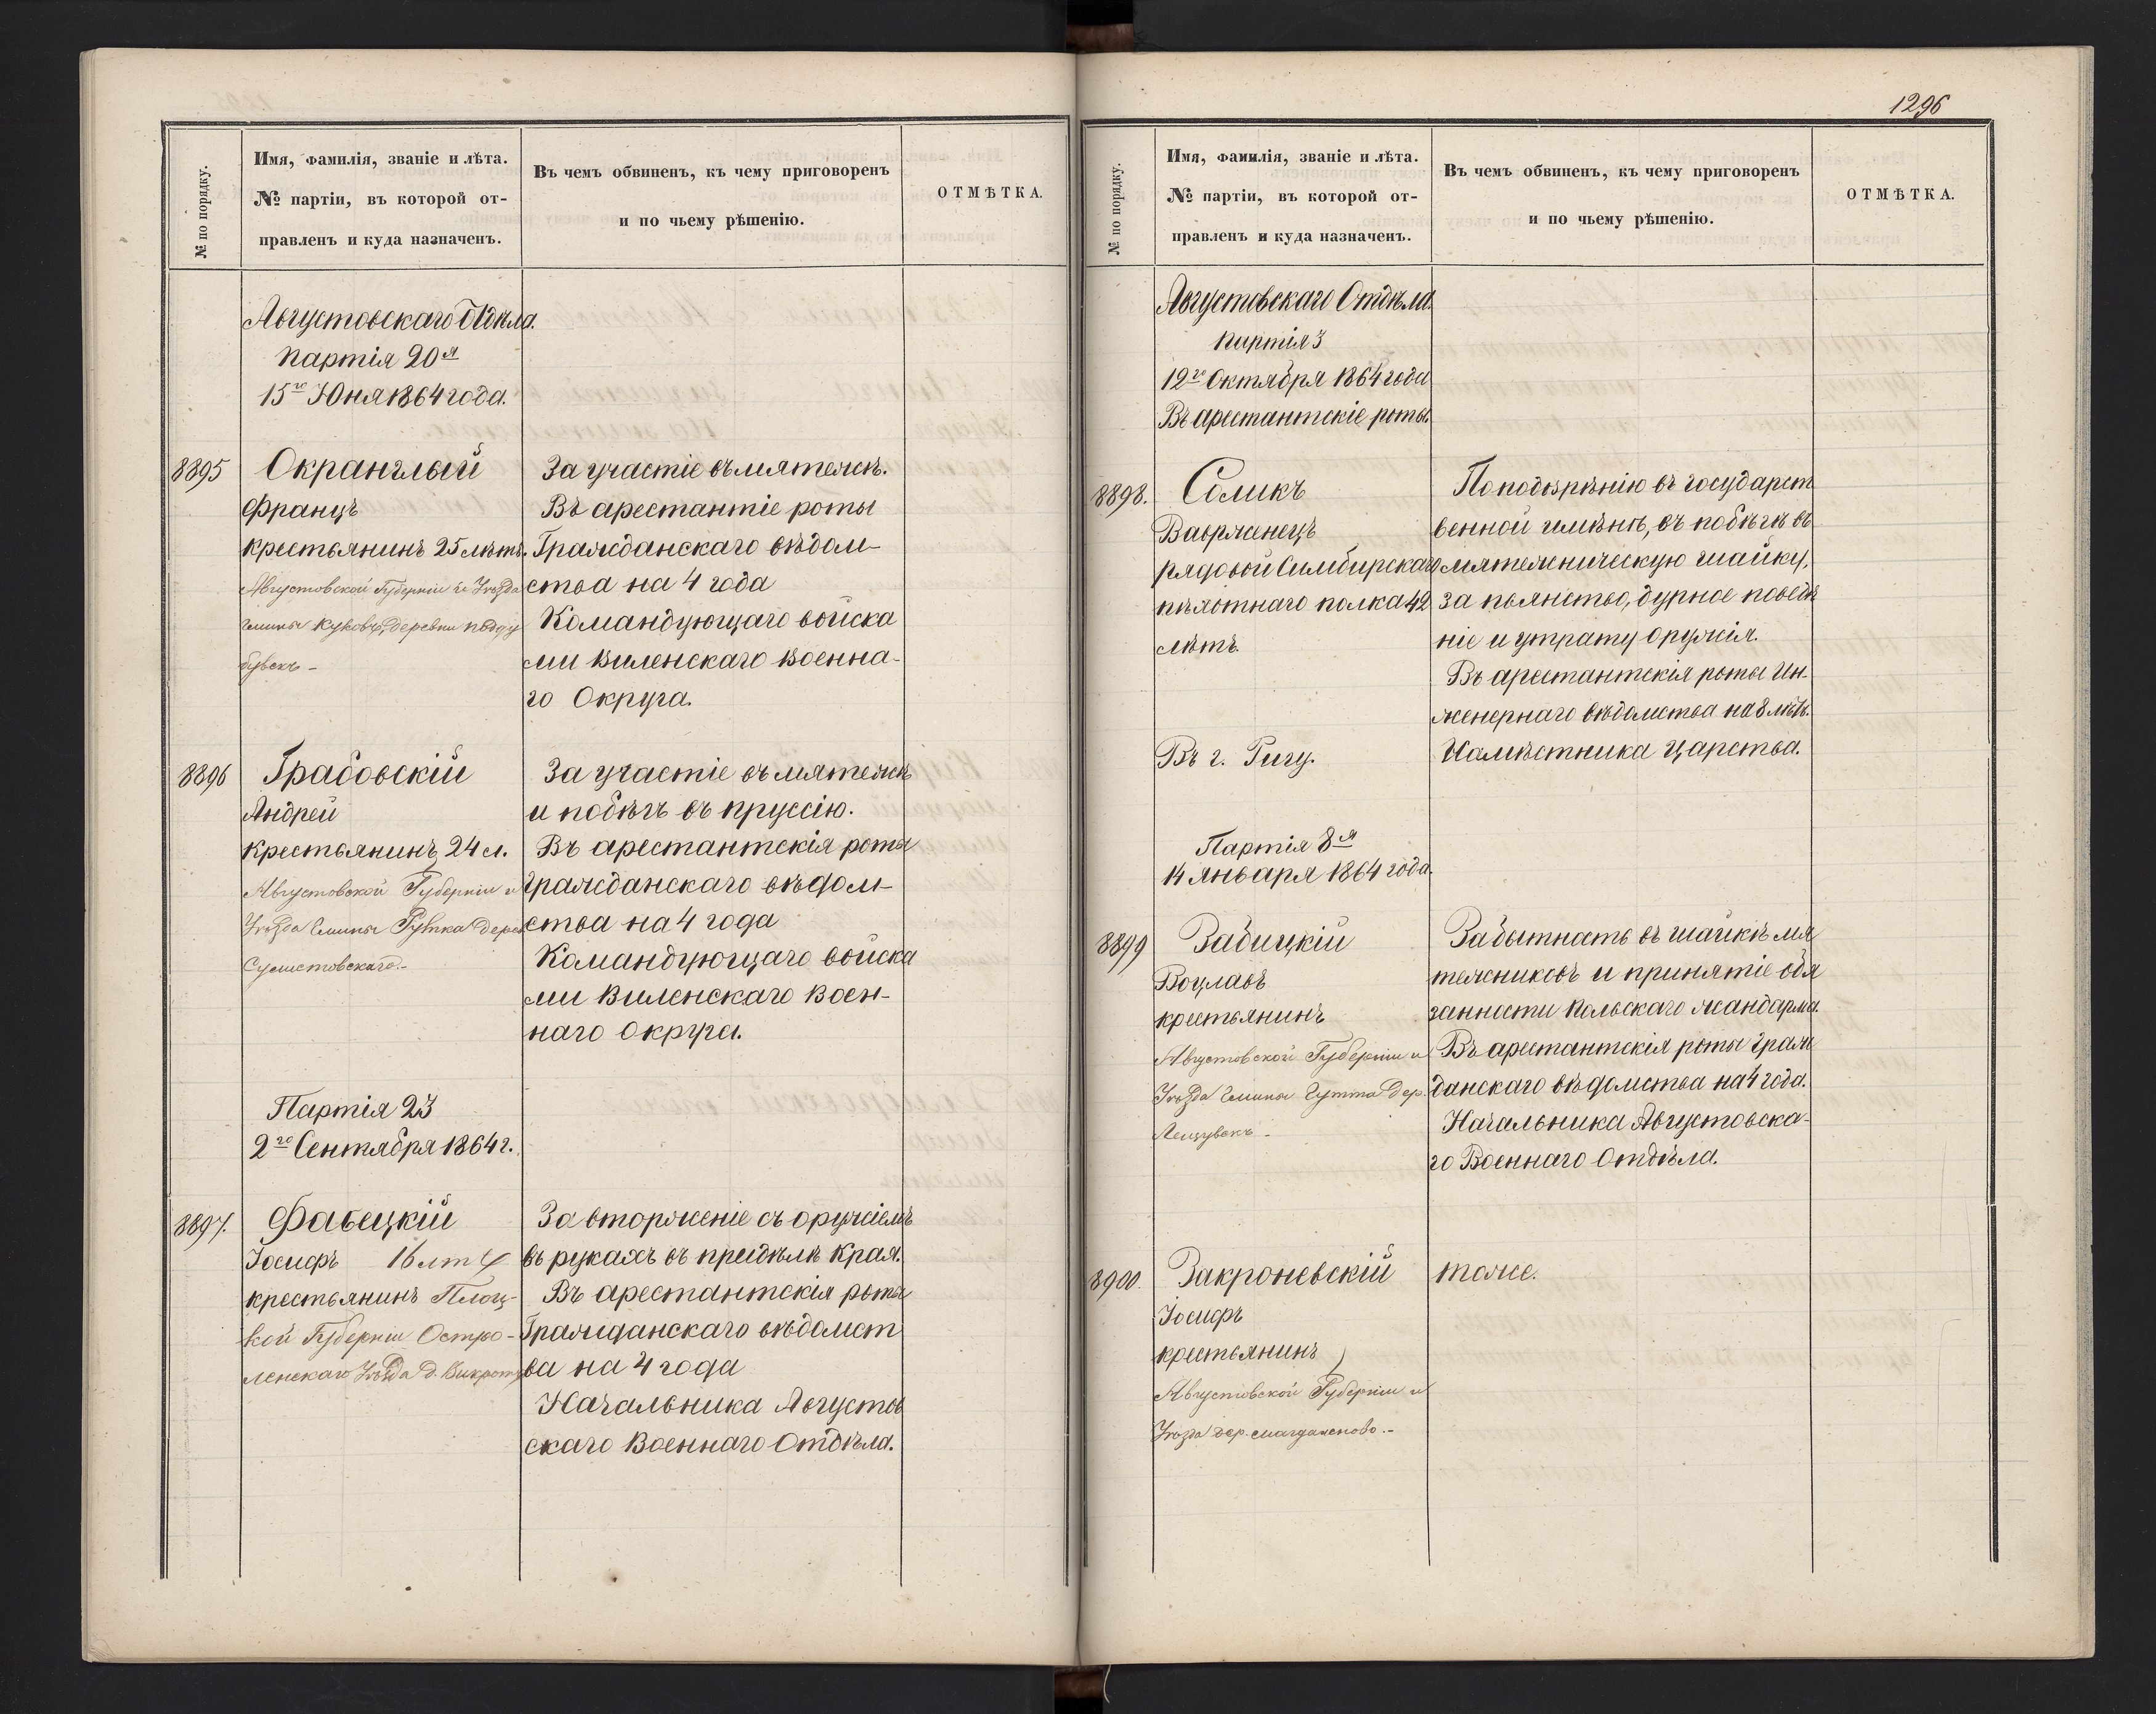 № по порядку.
Имя, фамилія, званіе и лѣта.
№ партіи, въ которой от-
правленъ и куда назначенъ.
Въ чемъ обвиненъ, къ чему приговоренъ
и по чьему рѣшенію.
ОТМѢТКА.
Августовскаго Отдѣла.
Партія 20я
15го Юня 1864 года.
8895
Окранглый
Францъ
крестьянинъ 25 лѣтъ.
Августовской Губерніи и Уѣзда
гмины Куковъ, деревни
За участіе въ мятежѣ.
Въ арестантіе роты
Гражданскаго вѣдом-
ства на 4 года
Командующаго войска
ми Виленскаго Военна-
го Округа.
8896
Грабовскій
Андрей
крестьянинъ 24 л.
Августовской Губерніи и
Уѣзда Гмины Рутка дерев
За участіе въ мятежѣ
и побѣгъ въ пруссію.
Въ арестантскія роты
Гражданскаго вѣдом-
ства на 4 года
Командующаго войска
ми Виленскаго Воен-
наго округа.
Партія 23
2го Сентября 1864 г.
8897.
Фабецкій
Іосифъ 16 лт
крестьянинъ Плоц-
кой Губерніи Остро-
ленскаго Уѣзда д.
За вторженіе съ оружіемъ
въ рукахъ въ предѣлѣ края.
Въ арестантскія роты
Гражданскаго вѣдомст
ва на 4 года
Начальника Августов
скаго Военнаго Отдѣла.
1296
№ по порядку.
Имя, фамилія, званіе и лѣта.
№ партіи, въ которой от-
правленъ и куда назначенъ.
Въ чемъ обвиненъ, къ чему приговоренъ
и по чьему рѣшенію.
ОТМѢТКА.
Августовскаго Отдѣла.
партія 3
12го Октября 1864 года
Въ арестантскіе роты.
8898.
Соликъ
Вавржинецъ
рядовой Симбирскаго
пѣхотнаго полка 42
лѣтъ
Въ г. Ригу.
По подозрѣнію въ государст
венной измѣнѣ, въ побѣгѣ въ
мятежническую шайку,
за пьянство, дурное поведе
ніе и утрату оружія.
Въ арестантскія роты Ин-
женернаго вѣдомства на 8 лѣтъ.
Намѣстника Царства.
Партія 8я
14 января 1864 года.
8899
Забицкій
Воцлавъ
крестьянинъ
Августовской Губерніи и
Уѣзда Гмины Гутта дер.
За бытность въ шайкѣ мя
тежниковъ и принятіе обя
занности польскаго жандарма.
Въ арестантскія роты граж
данскаго вѣдомства на 4 года.
Начальника Августовска-
го Военнаго Отдѣла.
8900.
Закроневскій
Іосифъ
крестьянинъ
Августовской Губерніи и
Уѣзда дер. Магдаленово.-
тоже.